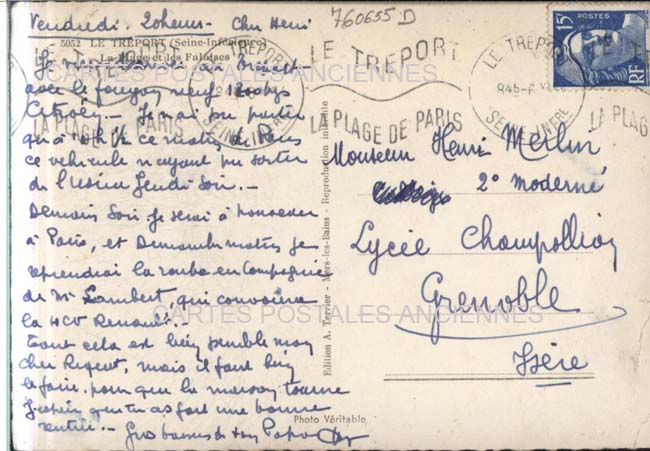 Vendredi. 20 heures - Cher Henri
760655 D
5052 LE TRÉPORT (Seine-Inférieure)
La Plage et les Falaises
avec le fourgon neuf
Citroën - Je n'ai pu partir
qu'à ce matin de Paris
ce véhicule n'ayant pu sortir
de l'usine Jeudi Soir. -
Demain Soir je serai à
à Paris, et Dimanche matin je
reprendrai la route en Compagnie
de Mr Lambert, qui convoiera
la 4CV Renault. -
tout cela est bien pénible mon
cher, mais il faut bien
le faire, pour que la maison tourne
J'espère que tu as fait une bonne
rentrée. - Gros baisers de ton Papa
Edition A. Terrier - Mers-les-Bains - Reproduction interdite
Photo Véritable
LE TRÉPORT
SEINE-INFRE
LE TRÉPORT
LA PLAGE DE PARIS
LE TRÉPORT
845-6
SEINE-INFRE
LA PLAGE DE PARIS
LA PLAG
15F
POSTES
RF
Monsieur Henri Merlin
2° moderne
Lycée Champollion
Grenoble
Isère
CARTES POSTALES ANCIENNES
CARTES POSTALES ANCIENNES